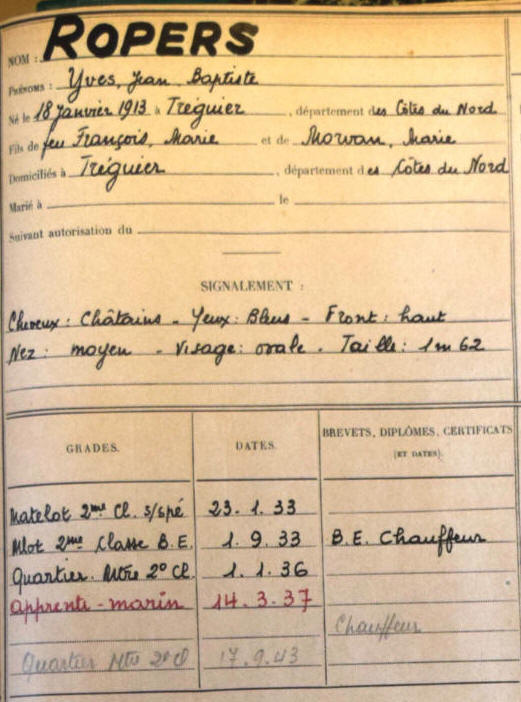 NOM : ROPERS
PRÉNOMS : Yves, Jean Baptiste
Né le 18 Janvier 1913 à Tréguier, département des Côtes du Nord
Fils de feu François, Marie et de Morvan, Marie
Domiciliés à Tréguier, département des Côtes du Nord
Marié à le
Suivant autorisation du
SIGNALEMENT :
Cheveux : Châtains - Yeux : Bleus - Front : haut
Nez : moyen - Visage : ovale - Taille : 1m 62
GRADES. DATES. BREVETS, DIPLÔMES, CERTIFICATS
(ET DATES).
Matelot 2me Cl. s/spé 23. 1. 33
Mlot 2me Classe B.E. 1. 9. 33 B.E. Chauffeur
Quartier. Mtre 2º Cl. 1. 1. 36
apprenti-marin 14. 3. 37
Chauffeur
Quartier Mtre 2º Cl 17.9.43